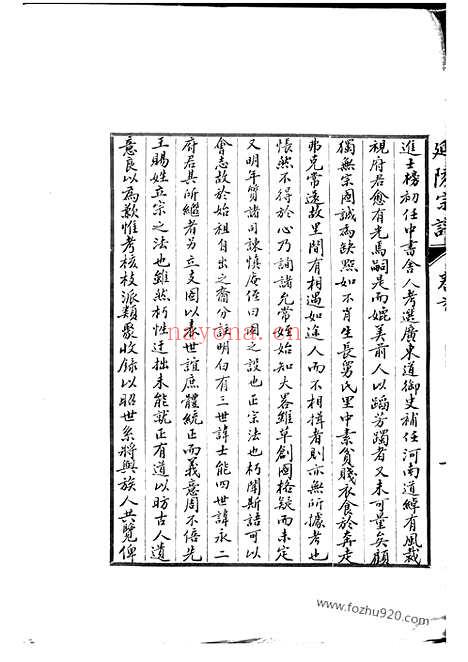 延陵宗譜 卷首
進士榜初任中書舍人考選廣東道御史補任河南道綽有風裁
視府君愈有光焉嗣是而媲美前人以蹈芳躅者又未可量矣顧
獨無宗圖誠為缺點如不肖生長舅氏里中素貧賤衣食於奔走
弗克常還故里間有相遇如途人而不相揖者則亦無所據考也
悵然不得於心乃詢諸允常姪始知大畧雖草創圖格疑而未定
又明年質諸司諫慎庵侄曰圖之設也正宗法也朽聞斯語可以
會志故於始祖自出之裔分註明白有三世諱士能四世諱永二
府君其所繼者另立支圖以奉世誼庶體統正而義意周不倍先
王賜姓立宗之法也雖然朽性迂拙未能就正有道以昉古人遺
意良以為歉惟考核枝派類聚收錄以昭世系將與族人共覽俾
nayona.cn
www.fozhu920.com